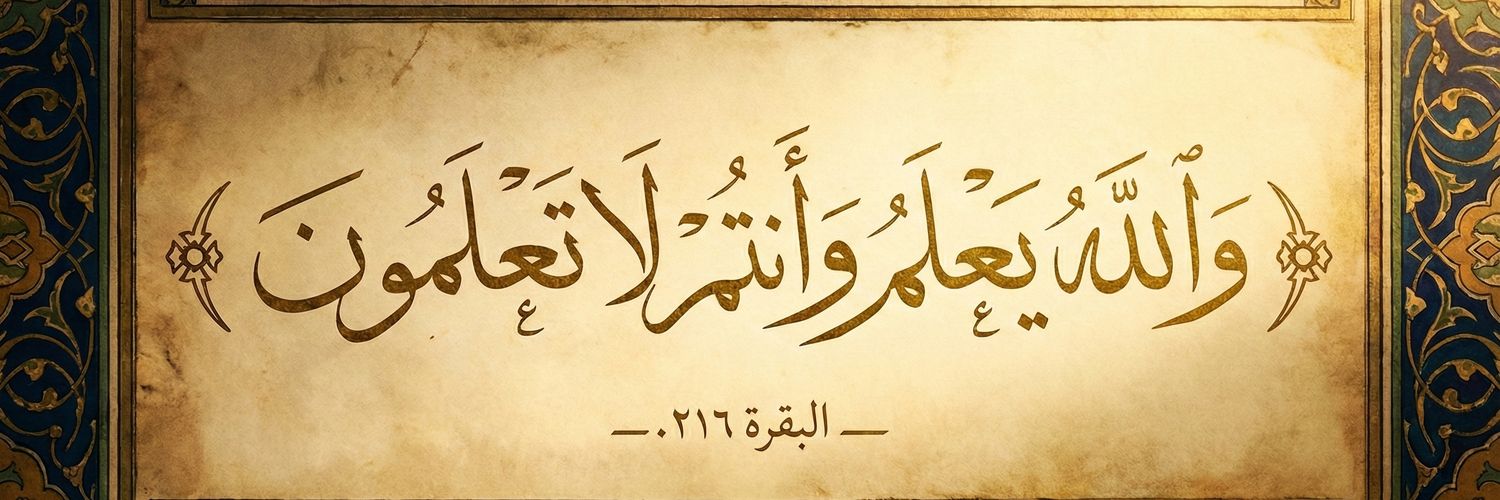 ﴿وَٱللَّهُ يَعْلَمُ وَأَنتُمْ لَا تَعْلَمُونَ﴾
— البقرة ٢١٦٠ —